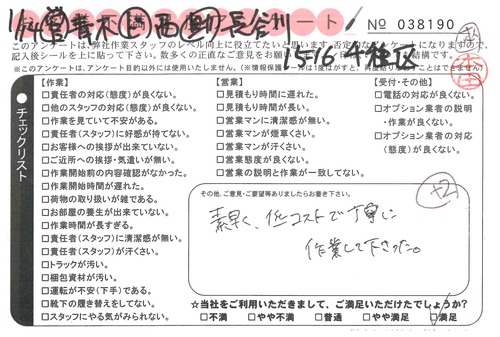 1/14 営 青木 上 西 助 長谷川
ート
No 038190
このアンケートは、弊社作業スタッフのレベル向上に役立てたいと思います。否定的なアンケートになりますので、
記入後シールを上に貼って下さい。数多くの正直なご意見をお願い
結構です。
1516
※このアンケートは、アンケート目的以外には使用いたしません。
チェックリスト
【作業】
□責任者の対応(態度)が良くない。
□他のスタッフの対応(態度)が良くない。
□作業を見ていて不安がある。
□責任者(スタッフ)に好感が持てない。
□お客様への挨拶が出来ていない。
□ご近所への挨拶・気遣いが無い。
□作業開始前の内容確認がなかった。
□作業開始時間が遅れた。
□荷物の取り扱いが雑である。
□お部屋の養生が出来ていない。
□作業時間が長すぎる。
□責任者(スタッフ)に清潔感が無い。
□責任者(スタッフ)が汗くさい。
□トラックが汚い。
□梱包資材が汚い。
□運転が不安(下手)である。
□靴下の履き替えをしてない。
□スタッフにやる気がみられない。
【営業】
□見積もり時間に遅れた。
□見積もり時間が長い。
□営業マンに清潔感が無い。
□営業マンが煙草くさい。
□営業マンが汗くさい。
□営業態度が良くない。
□営業の説明と作業が一致してない。
【受付・その他】
□電話の対応が良くない。
□オプション業者の説明
・作業が良くない。
□オプション業者の対応
(態度)が良くない。
その他、ご意見・ご要望等ありましたらお書き下さい。
+2
素早く、低コストで丁寧に
作業して下さった。
☆当社をご利用いただきまして、ご満足いただけたでしょうか?
□不満 □やや不満 □普通 □やや満足 □満足